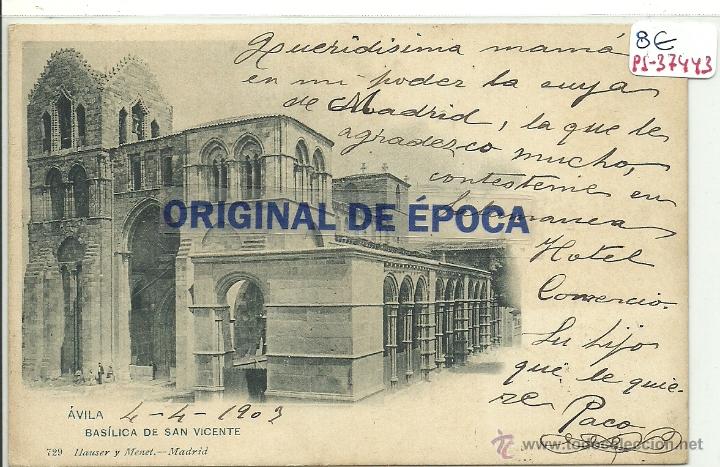 8€
PS-37443
Queridisima mamá
en mi poder la suya
de Madrid, la que le
agradezco mucho,
contesteme en
Salamanca
Hotel
Comercio.
Su hijo
que le quie-
re Paco
ORIGINAL DE ÉPOCA
ÁVILA 4-4-1903
BASÍLICA DE SAN VICENTE
729 Hauser y Menet.—Madrid
todocoleccion.net